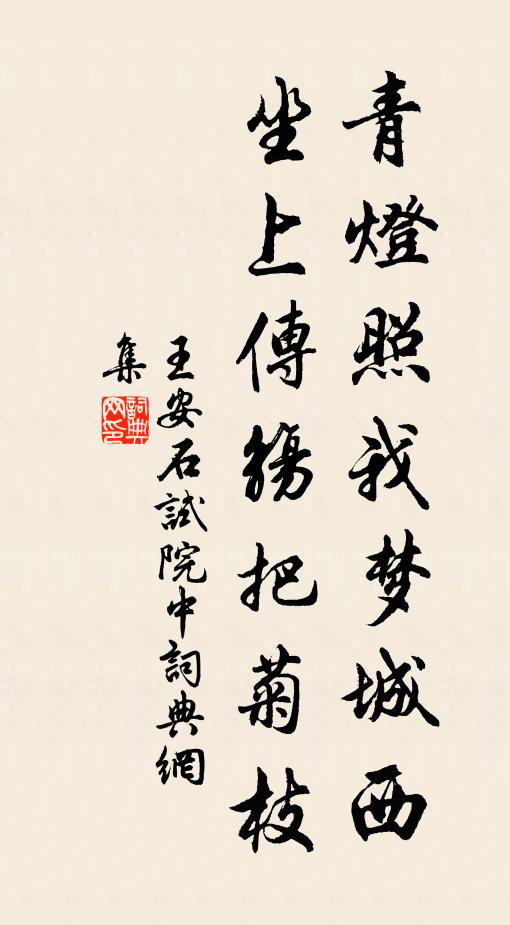 青燈照我梦城西
坐上傳觴把菊枝
王安石試院中詞典網
集
詞典網印